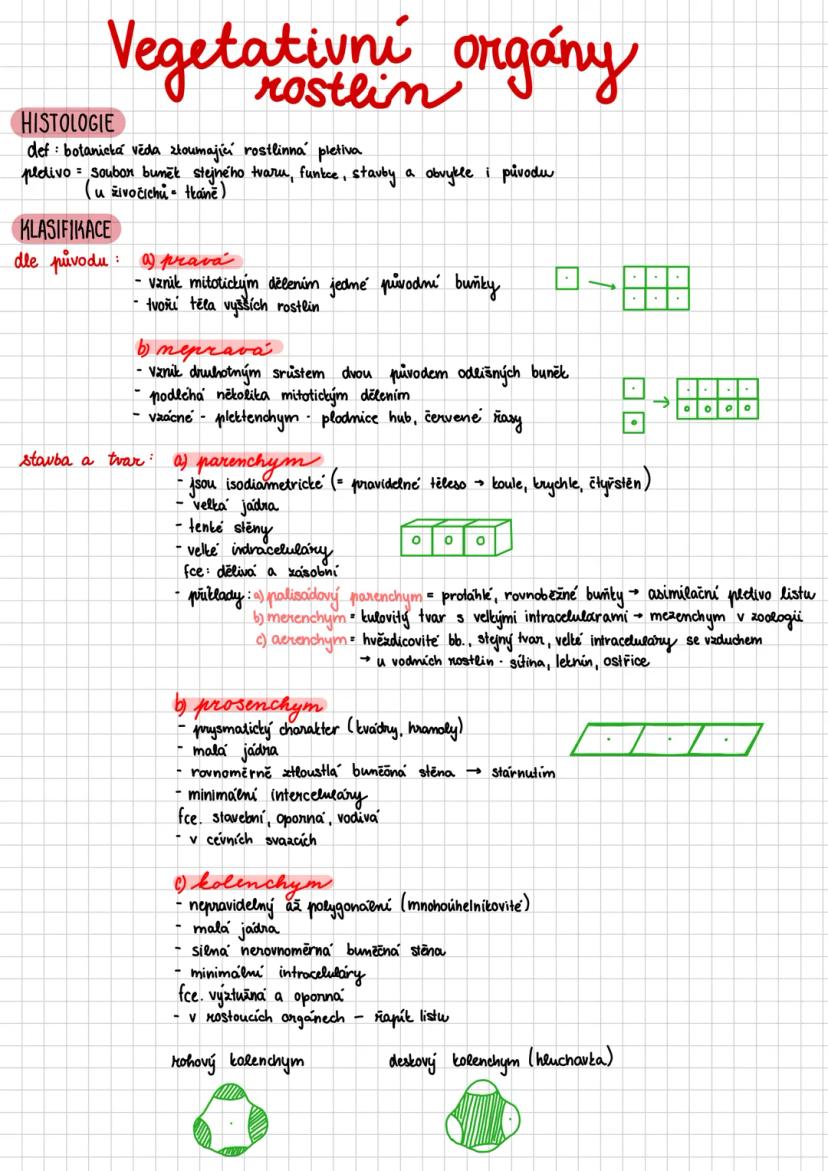 Vegetativní orgány
rostlin
HISTOLOGIE
def : botanická věda zkoumající rostlinná pletiva
pletivo = soubor buněk stejného tvaru, funkce, stavby a obvykle i původu
(u živočichů = tkáně)
KLASIFIKACE
dle původu : a) pravá
- vznik mitotickým dělením jedné původní buňky
- tvoří těla vyšších rostlin
b) nepravá
- vznik druhotným srůstem dvou původem odlišných buněk
- podléhá několika mitotickým dělením
- vzácné - plektenchym - plodnice hub, červené řasy
stavba a tvar : a) parenchym
- jsou isodiametrické (= pravidelné těleso → koule, krychle, čtyřstěn)
- velká jádra
- tenké stěny
- velké intraceluláry
fce : dělivá a zásobní
- příklady : a) palisádový parenchym = protáhlé, rovnoběžné buňky → asimilační pletivo listu
b) merenchym = kulovitý tvar s velkými intracelulárami → mezenchym v zoologii
c) aerenchym = hvězdicovité bb., stejný tvar, velké intraceluláry se vzduchem
→ u vodních rostlin - sítina, leknín, ostřice
b) prosenchym
- prysmatický charakter (kvádry, hranoly)
- malá jádra
- rovnoměrně ztloustlá buněčná stěna → stárnutím
- minimální interceluláry
fce. stavební, oporná, vodivá
- v cévních svazcích
c) kolenchym
- nepravidelný až polygonální (mnohoúhelníkovité)
- malá jádra
- silná nerovnoměrná buněčná stěna
- minimální introceluláry
fce. výztužná a oporná
- v rostoucích orgánech – řapík listu
rohový kolenchym deskový kolenchym (hluchavka)